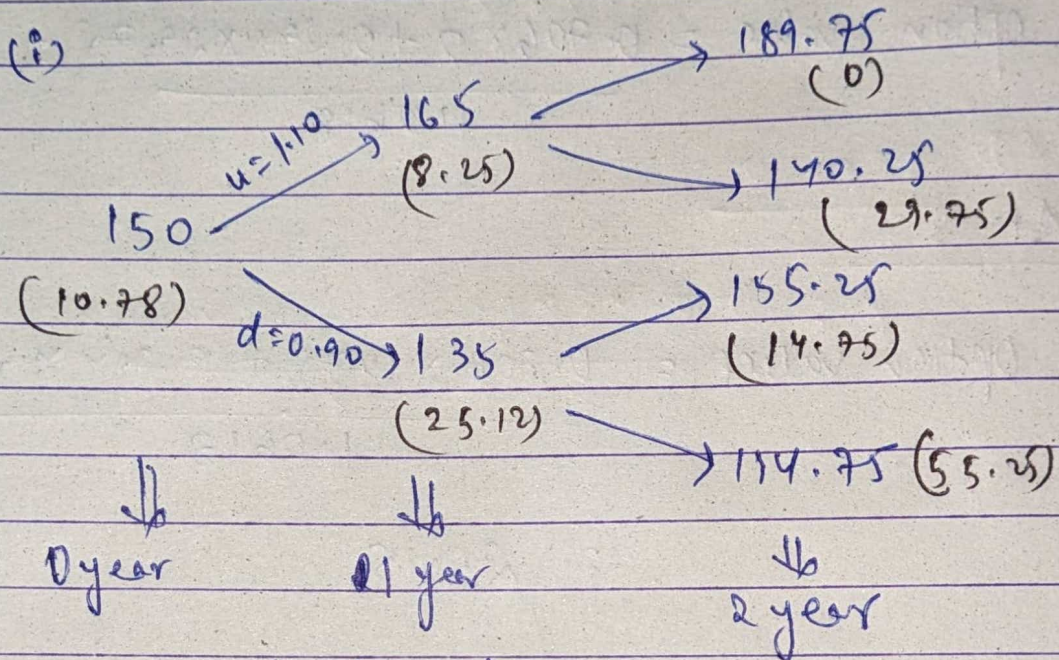 (i)
189.75
(0)
165
u=1.10
(8.25)
140.25
(29.75)
150
(10.78)
155.25
(14.75)
d=0.90
135
(25.12)
114.75 (55.25)
0 year
1 year
2 year